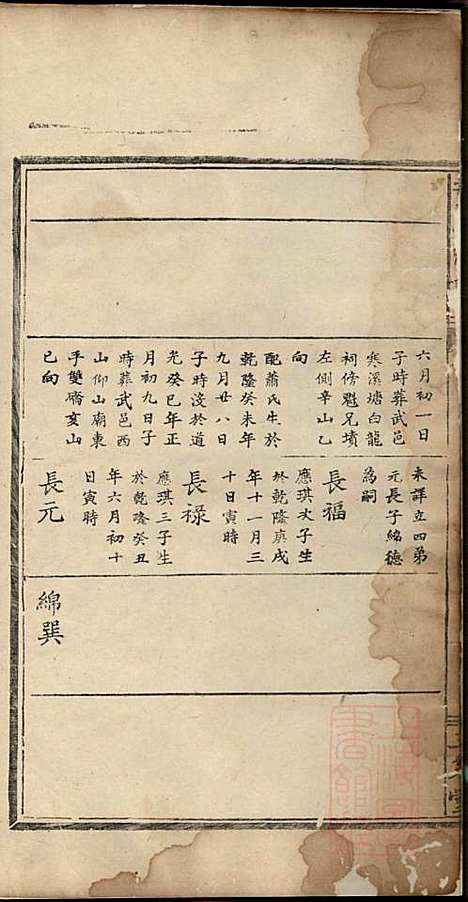 六月初一日
子時葬武邑
寒溪塘白龍
祠傍魁兄墳
左側辛山乙
向
配蕭氏生於
乾隆癸未年
九月廿八日
子時沒於道
光癸巳年正
月初九日子
時葬武邑西
山仰山廟東
手雙橋亥山
巳向
未詳立四弟
元長子綿德
為嗣
長福
應琪次子生
於乾隆庚戌
年十一月三
十日寅時
長祿
應琪三子生
於乾隆癸丑
年六月初十
日寅時
長元
綿巽